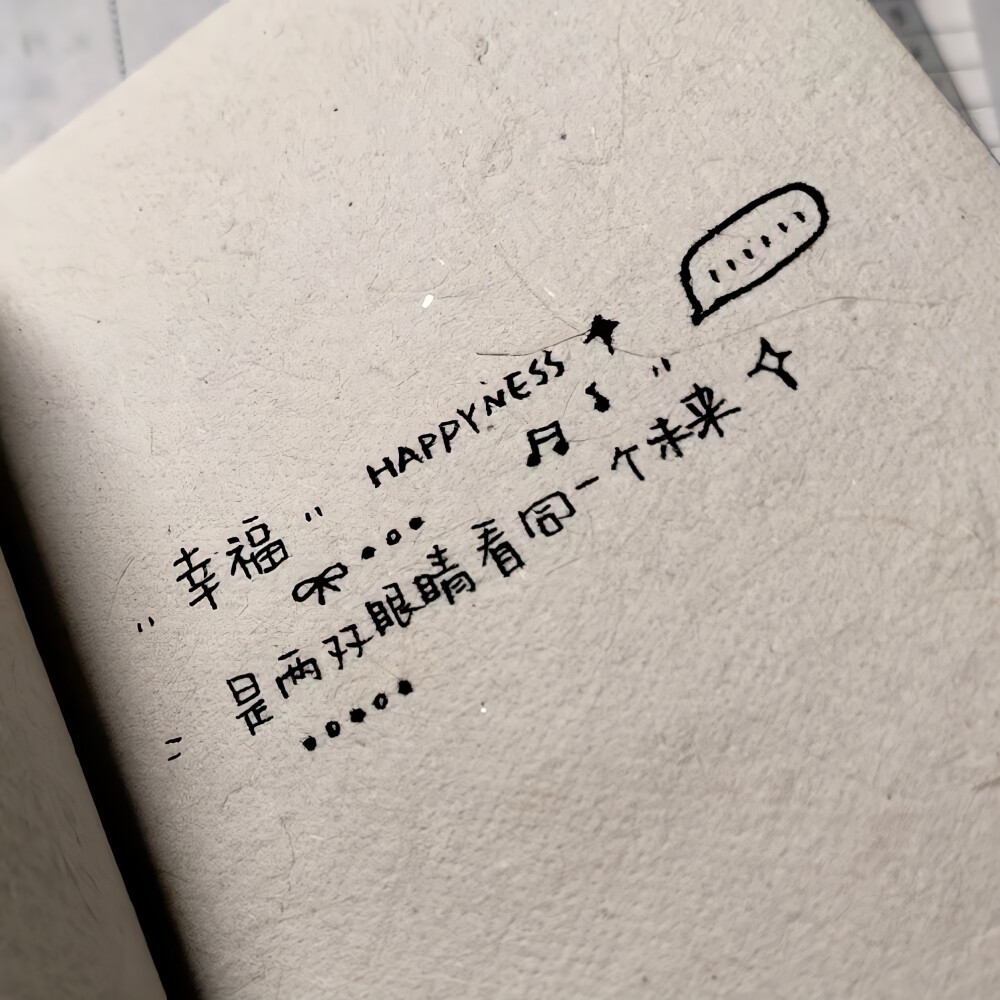 HAPPYNESS
"幸福"
是两双眼睛看同一个未来"